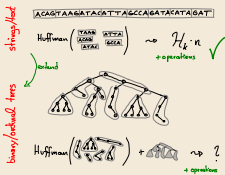 strings/text
ACAGTAAGATACATTAGCCAGATACATAGAT
Huffman ( TAAG ATTA ACAG GCCA ATAC ) ⇝ H_k · n
+ operations
extend
binary/ordinal trees
Huffman ( ) + ⇝ ?
+ operations